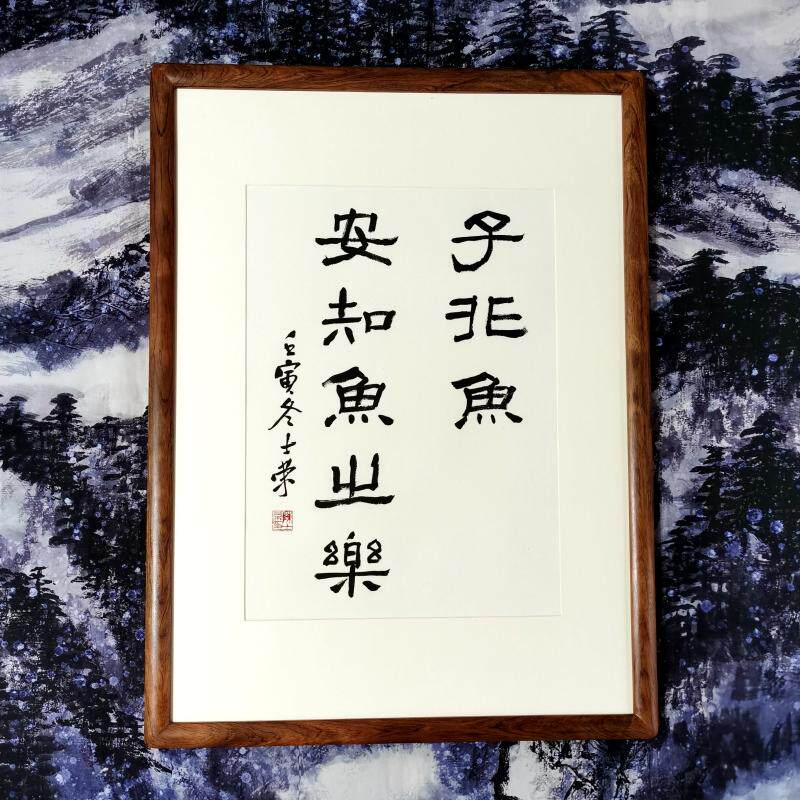 子非魚
安知魚之樂
壬寅冬士榮